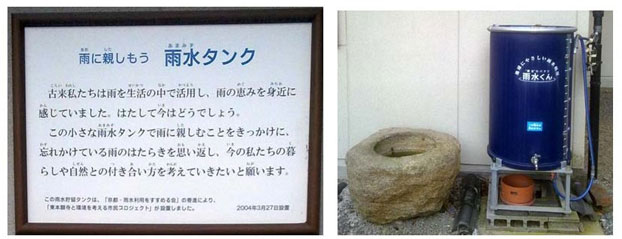 雨に親しもう 雨水タンク
古来私たちは雨を生活の中で活用し、雨の恵みを身近に
感じていました。はたして今はどうでしょう。
この小さな雨水タンクで雨に親しむことをきっかけに、
忘れかけている雨のはたらきを思い返し、今の私たちの暮
らしや自然との付き合い方を考えていきたいと願います。
この雨水貯留タンクは、「京都・雨水利用をすすめる会」の寄進により、
「東本願寺と環境を考える市民プロジェクト」が設置しました。 2004年3月27日設置
雨水くん